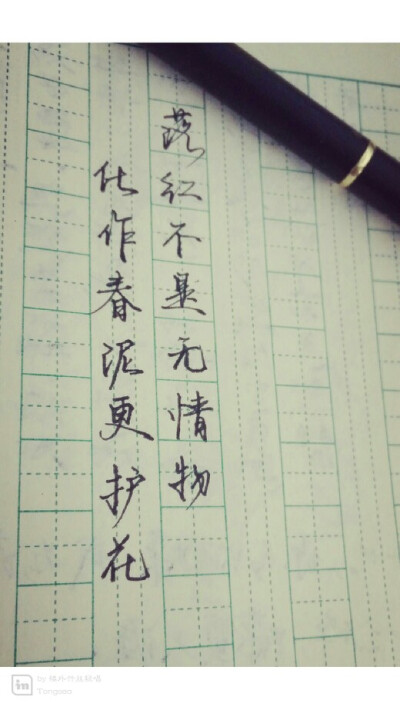 落红不是无情物
化作春泥更护花
in
by